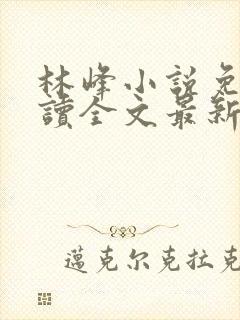 林峰小説免
讀全文最新
邁克尔克拉克